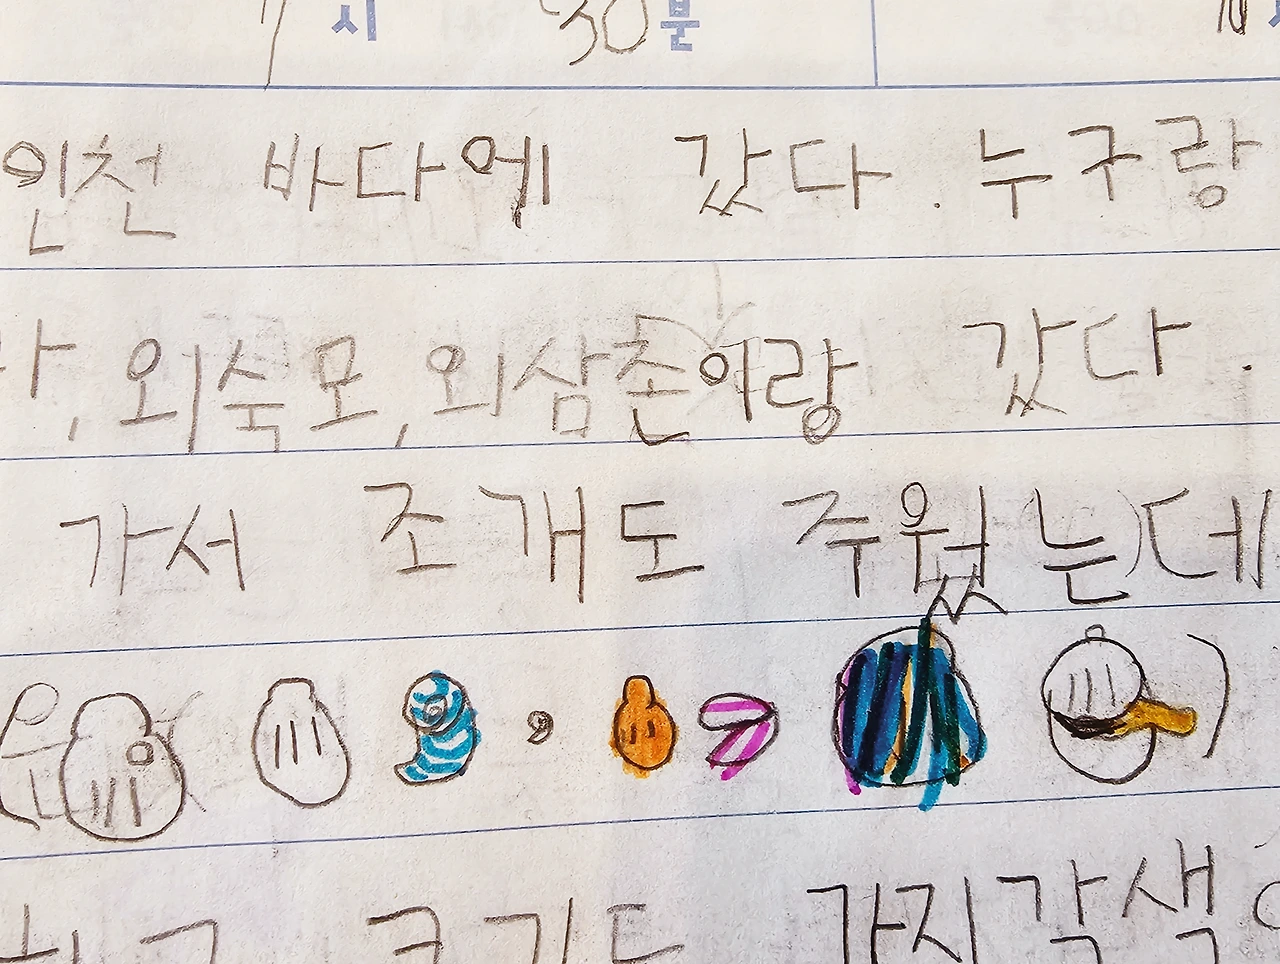 시 30분
인천 바다에 갔다. 누구랑
, 외숙모, 외삼촌이랑 갔다.
가서 조개도 주웠는데
크기도 가지각색